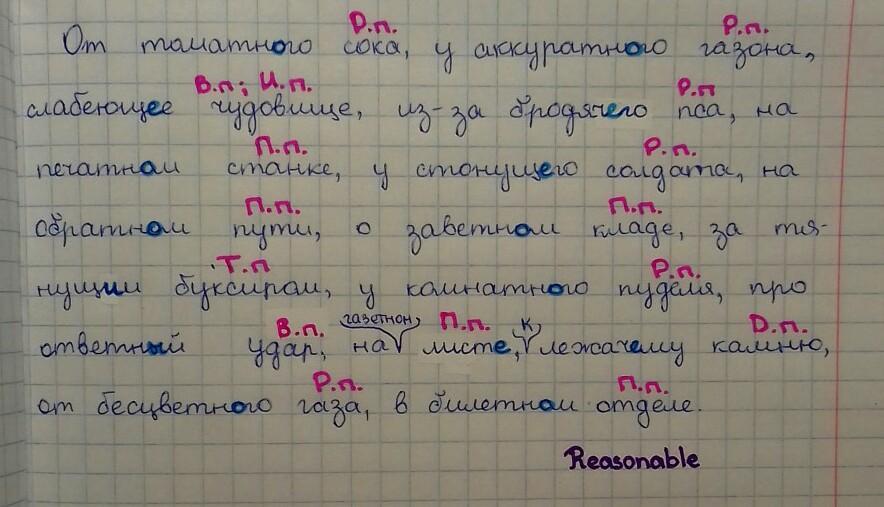 Р.п. Р.п.
От томатного сока, у аккуратного газона,
В.п; И.п. Р.п
слабеющее чудовище, из-за бродячего пса, на
П.п. Р.п.
печатном станке, у стонущего солдата, на
П.п. П.п.
обратном пути, о заветном кладе, за тя-
Т.п Р.п.
нущим буксиром, у комнатного пуделя, про
В.п. газетном П.п. к Д.п.
ответный удар, на листе, лежачему камню,
Р.п. П.п.
от бесцветного газа, в билетном отделе.
Reasonable